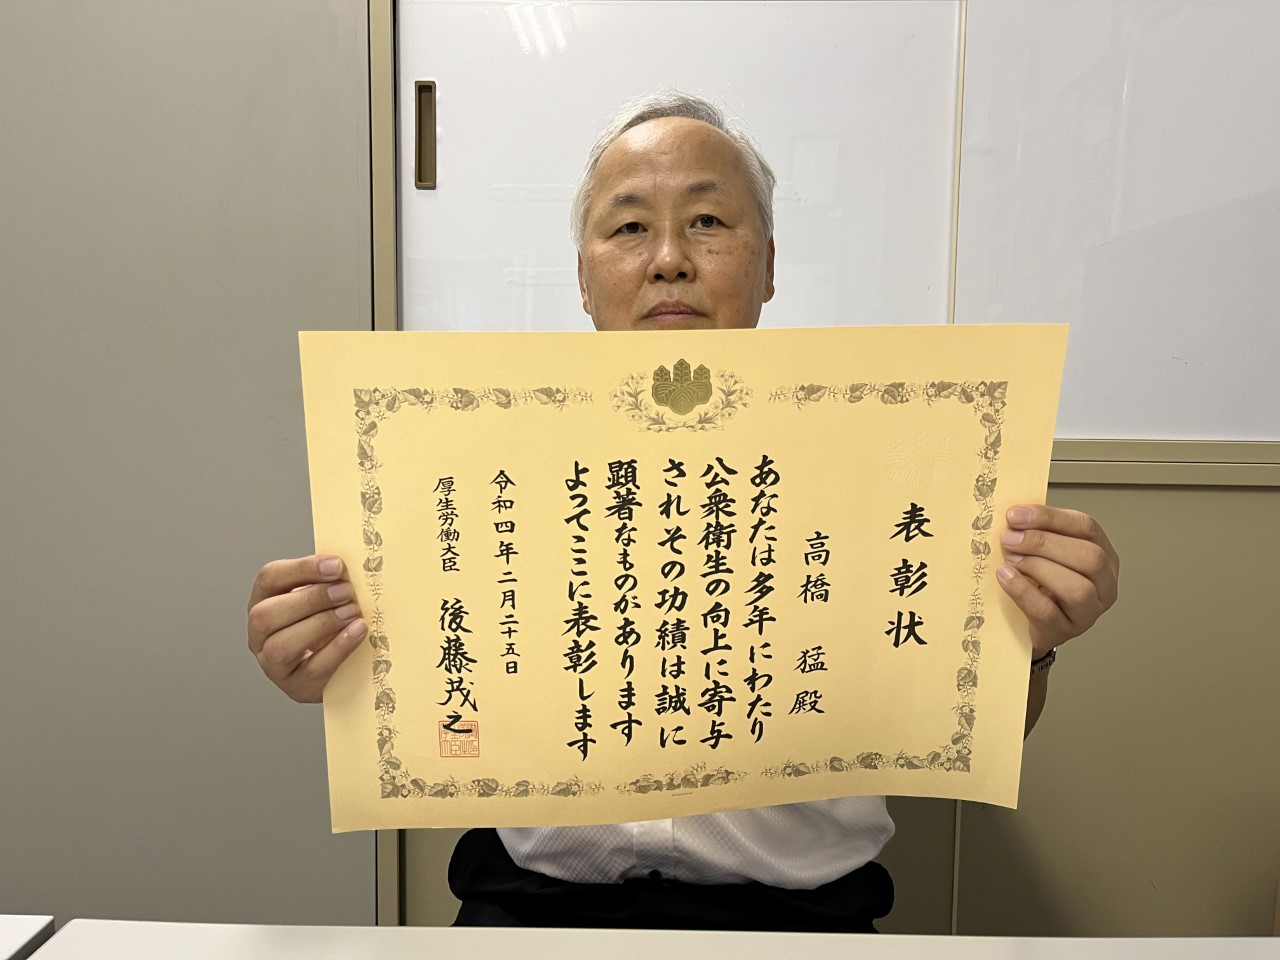 表彰状
高橋 猛 殿
あなたは多年にわたり
公衆衛生の向上に寄与
されその功績は誠に
顕著なものがあります
よってここに表彰します
令和四年二月二十五日
厚生労働大臣 後藤茂之